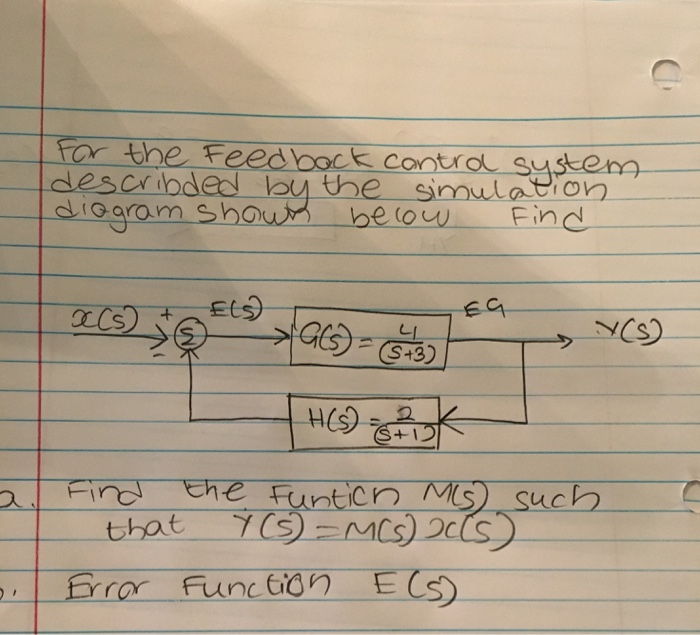 For the Feedback control system
describded by the simulation
diagram shown below Find
x(s) + E(s) G(s) = 4/(s+3) EG Y(s)
Σ
-
H(s) = 2/(s+1)
a. Find the Funticn M(s) such
that Y(s) = M(s) x(s)
b. Error Function E(s)